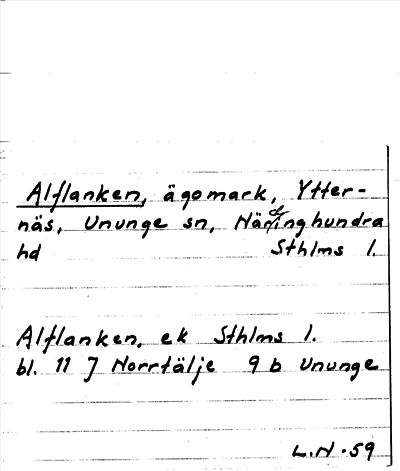 Alflanken, ägomark, Ytter-
näs, Ununge sn, Närdinghundra
hd Sthlms l.
Alflanken, ek Sthlms l.
bl. 11 J Norrtälje 9 b Ununge
L.N.59